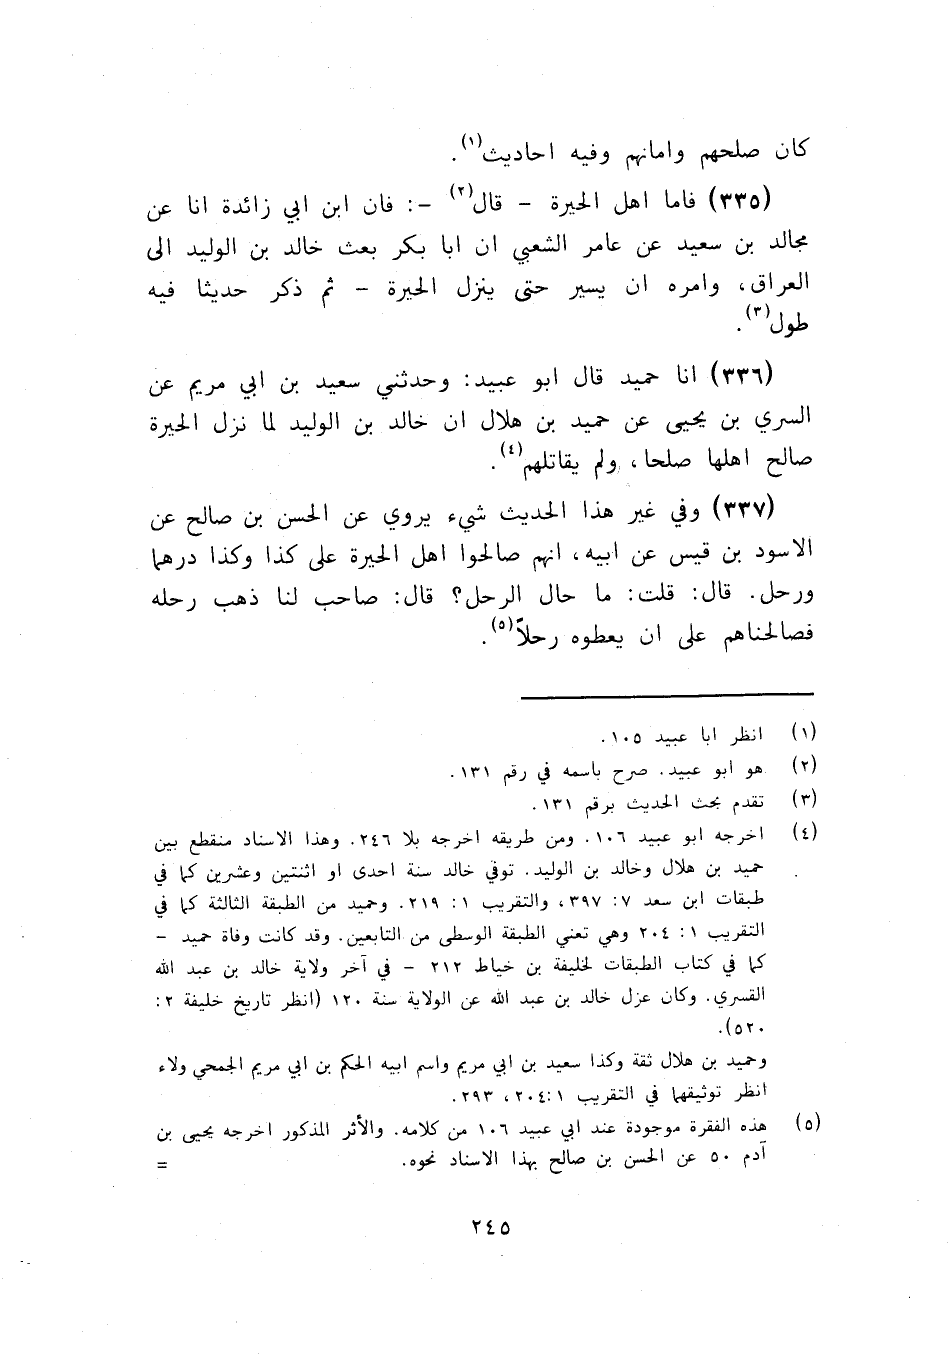 كان صلحهم وامانهم وفيه احاديث(١).
(٣٣٥) فاما اهل الحيرة - قال(٢) -: فان ابن ابي زائدة انا عن
مجالد بن سعيد عن عامر الشعبي ان ابا بكر بعث خالد بن الوليد الى
العراق، وامره ان يسير حتى ينزل الحيرة - ثم ذكر حديثا فيه
طول(٣).
(٣٣٦) انا حميد قال ابو عبيد: وحدثني سعيد بن ابي مريم عن
السري بن يحيى عن حميد بن هلال ان خالد بن الوليد لما نزل الحيرة
صالح اهلها صلحا، ولم يقاتلهم(٤).
(٣٣٧) وفي غير هذا الحديث شيء يروي عن الحسن بن صالح عن
الاسود بن قيس عن ابيه، انهم صالحوا اهل الحيرة على كذا وكذا درهما
ورحل. قال: قلت: ما حال الرحل؟ قال: صاحب لنا ذهب رحله
فصالحناهم على ان يعطوه رحلاً(٥).
(١) انظر ابا عبيد ١٠٥.
(٢) هو ابو عبيد. صرح باسمه في رقم ١٣١.
(٣) تقدم بحث الحديث برقم ١٣١.
(٤) اخرجه ابو عبيد ١٠٦. ومن طريقه اخرجه بلا ٢٤٦. وهذا الاسناد منقطع بين
حميد بن هلال وخالد بن الوليد. توفي خالد سنة احدى او اثنتين وعشرين كما في
طبقات ابن سعد ٧: ٣٩٧، والتقريب ١: ٢١٩. وحميد من الطبقة الثالثة كما في
التقريب ١: ٢٠٤ وهي تعني الطبقة الوسطى من التابعين. وقد كانت وفاة حميد -
كما في كتاب الطبقات لخليفة بن خياط ٢١٢ - في آخر ولاية خالد بن عبد الله
القسري. وكان عزل خالد بن عبد الله عن الولاية سنة ١٢٠ (انظر تاريخ خليفة ٢:
٥٢٠).
وحميد بن هلال ثقة وكذا سعيد بن ابي مريم واسم ابيه الحكم بن ابي مريم الجمحي ولاء
انظر توثيقهما في التقريب ١: ٢٠٤، ٢٩٣.
(٥) هذه الفقرة موجودة عند ابي عبيد ١٠٦ من كلامه. والأثر المذكور اخرجه يحيى بن
آدم ٥٠ عن الحسن بن صالح بهذا الاسناد نحوه. =
٢٤٥